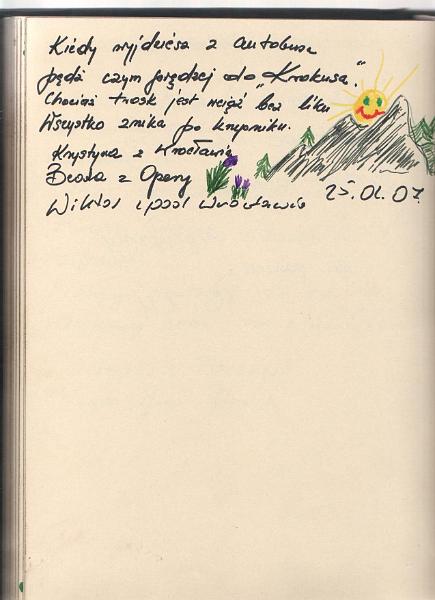 Kiedy wyjdziesz z autobusu
pędź czym prędzej do „Krokusa."
Chociaż trosk jest wciąż bez liku
Wszystko znika po krupniku.
Krystyna z Wrocławia
Beata z Opery
Wiktor spod Wrocławia
25.01.07.